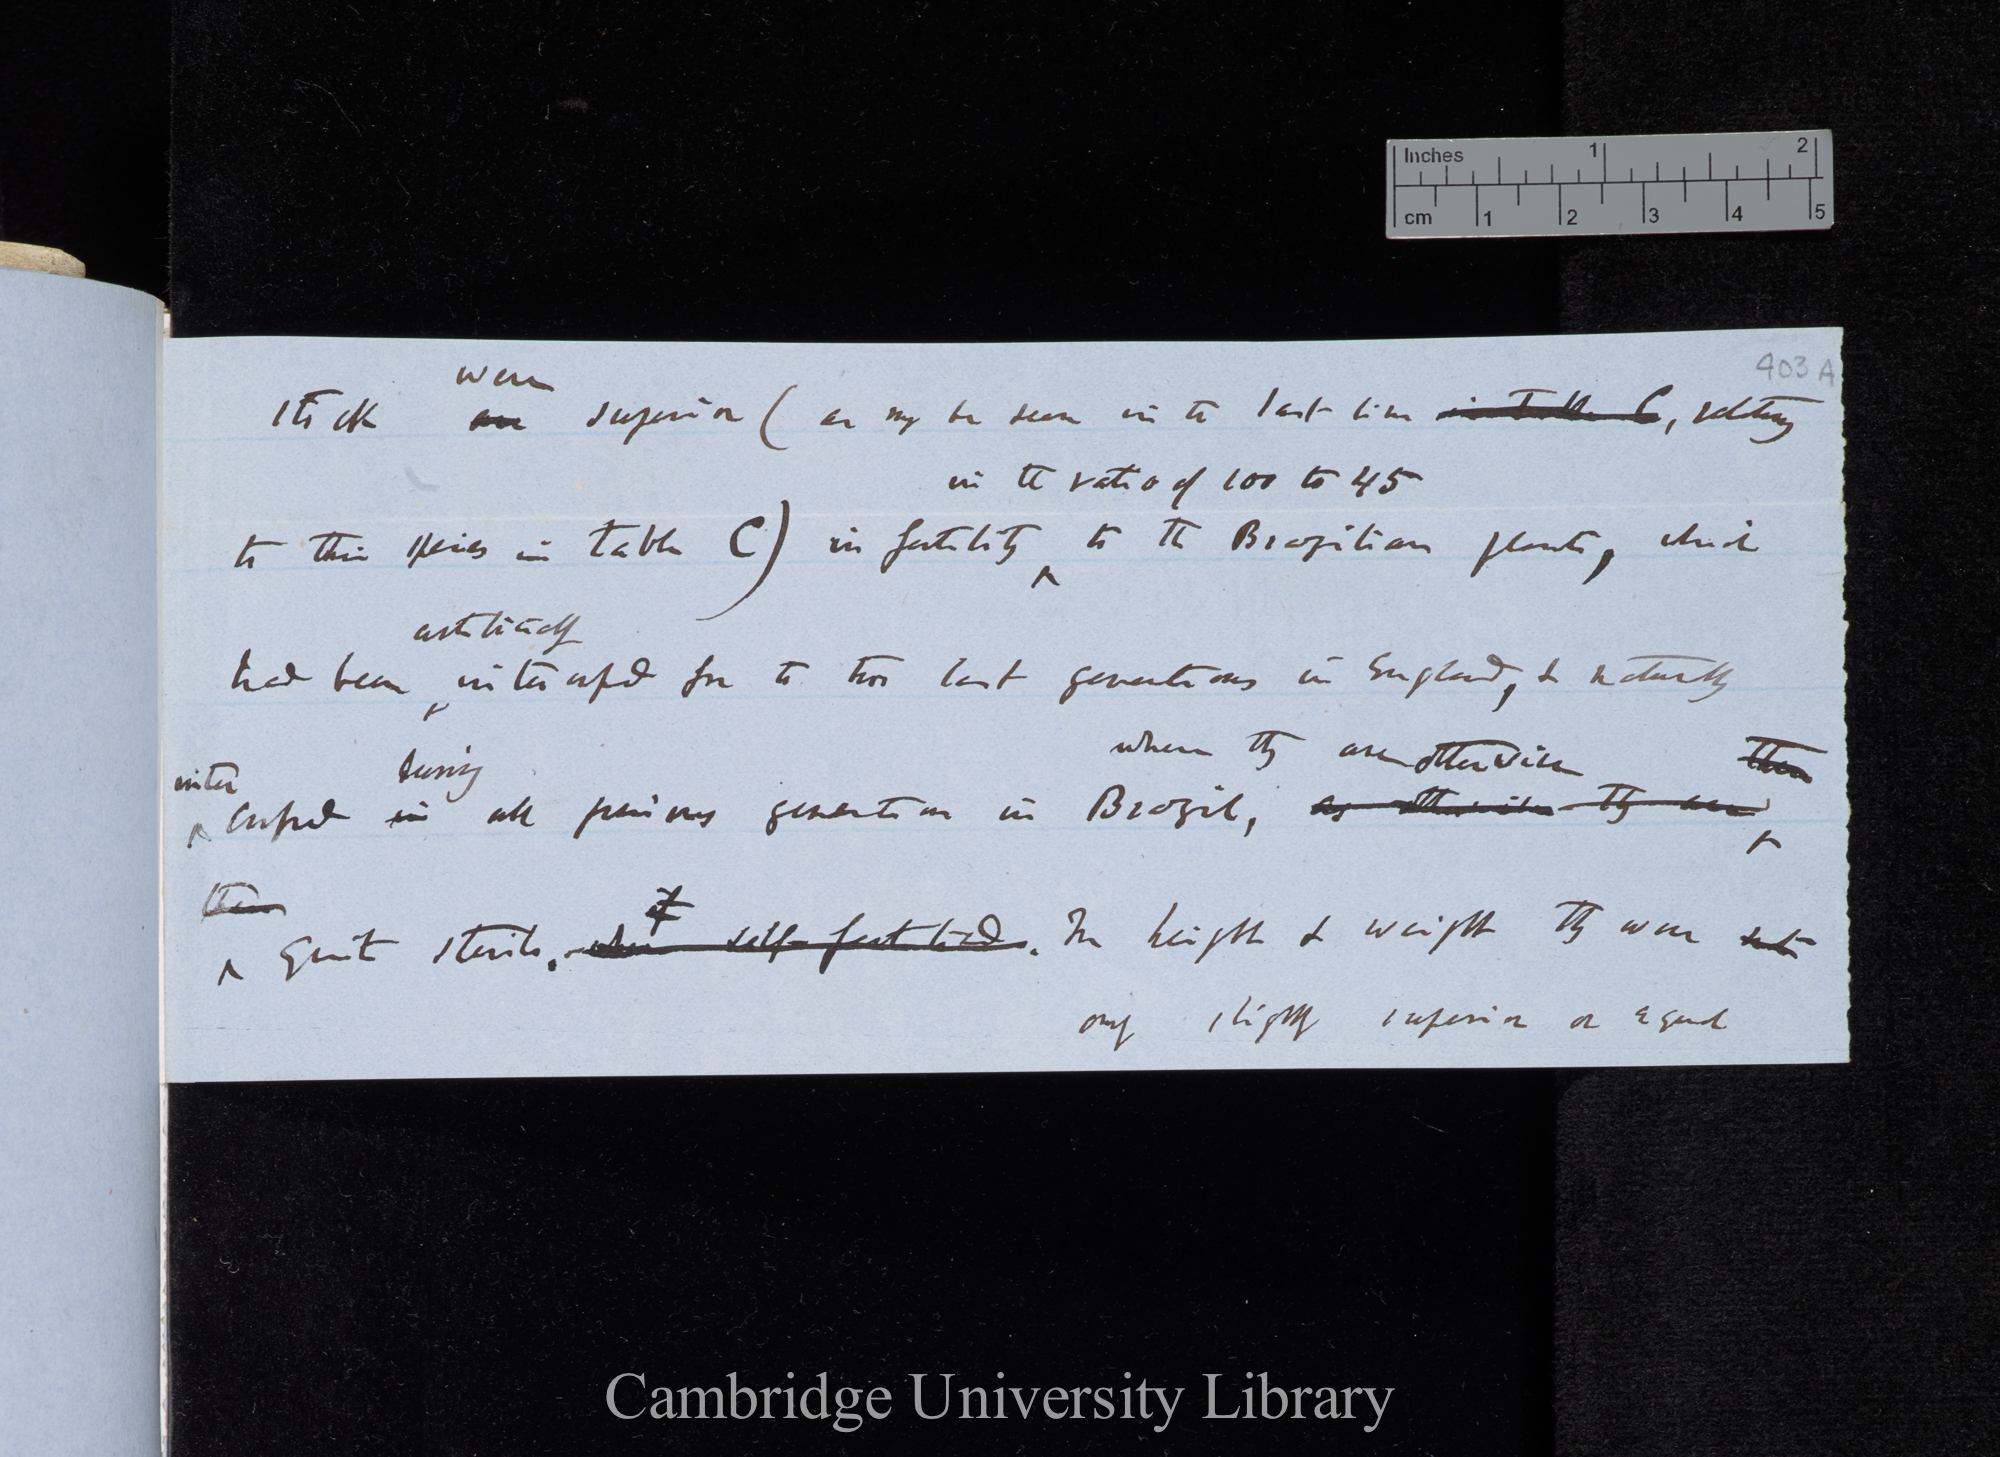 403 A
Inches 1 2
cm 1 2 3 4 5
were
stock are superior ( as may be seen in the last line in table C, relating
in the ratio of 100 to 45
to this species in table C) in fertility ^ to the Brazilian plants, which
artificially
had been ^ intercrossed for the two last generations in England, & naturally
inter during where they are otherwise then
^ crossed in all previous generations in Brazil, as otherwise they are ^
then if
^ quite sterile. when self-fertilised. In height & weight they were not
only slightly superior or equal
Cambridge University Library